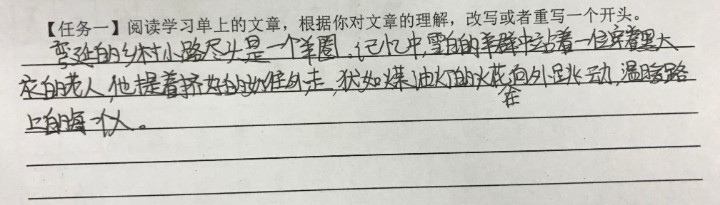 【任务一】阅读学习单上的文章，根据你对文章的理解，改写或者重写一个开头。
弯延的乡村小路尽头是一个羊圈，记忆中，雪白的羊群中站着一位穿着黑大
衣的老人，他提着挤好的奶往外走，犹如煤油灯的火花在向外跳动，温暖路
上的每一个人。